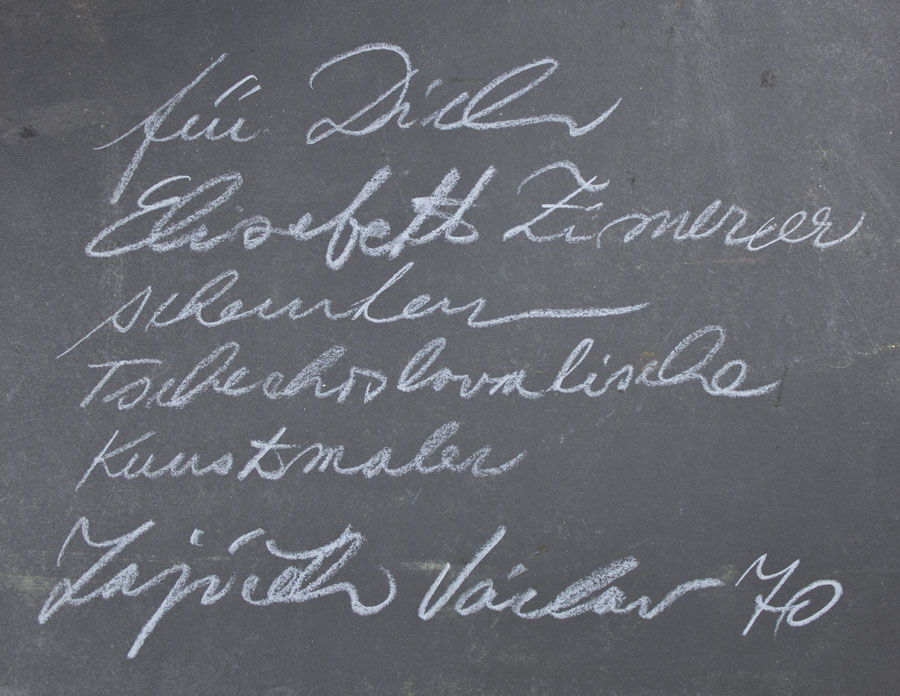 für Dich
Elisebett
schenken
Tschechoslovakische
Kunstmaler
Zajíček Václav 70